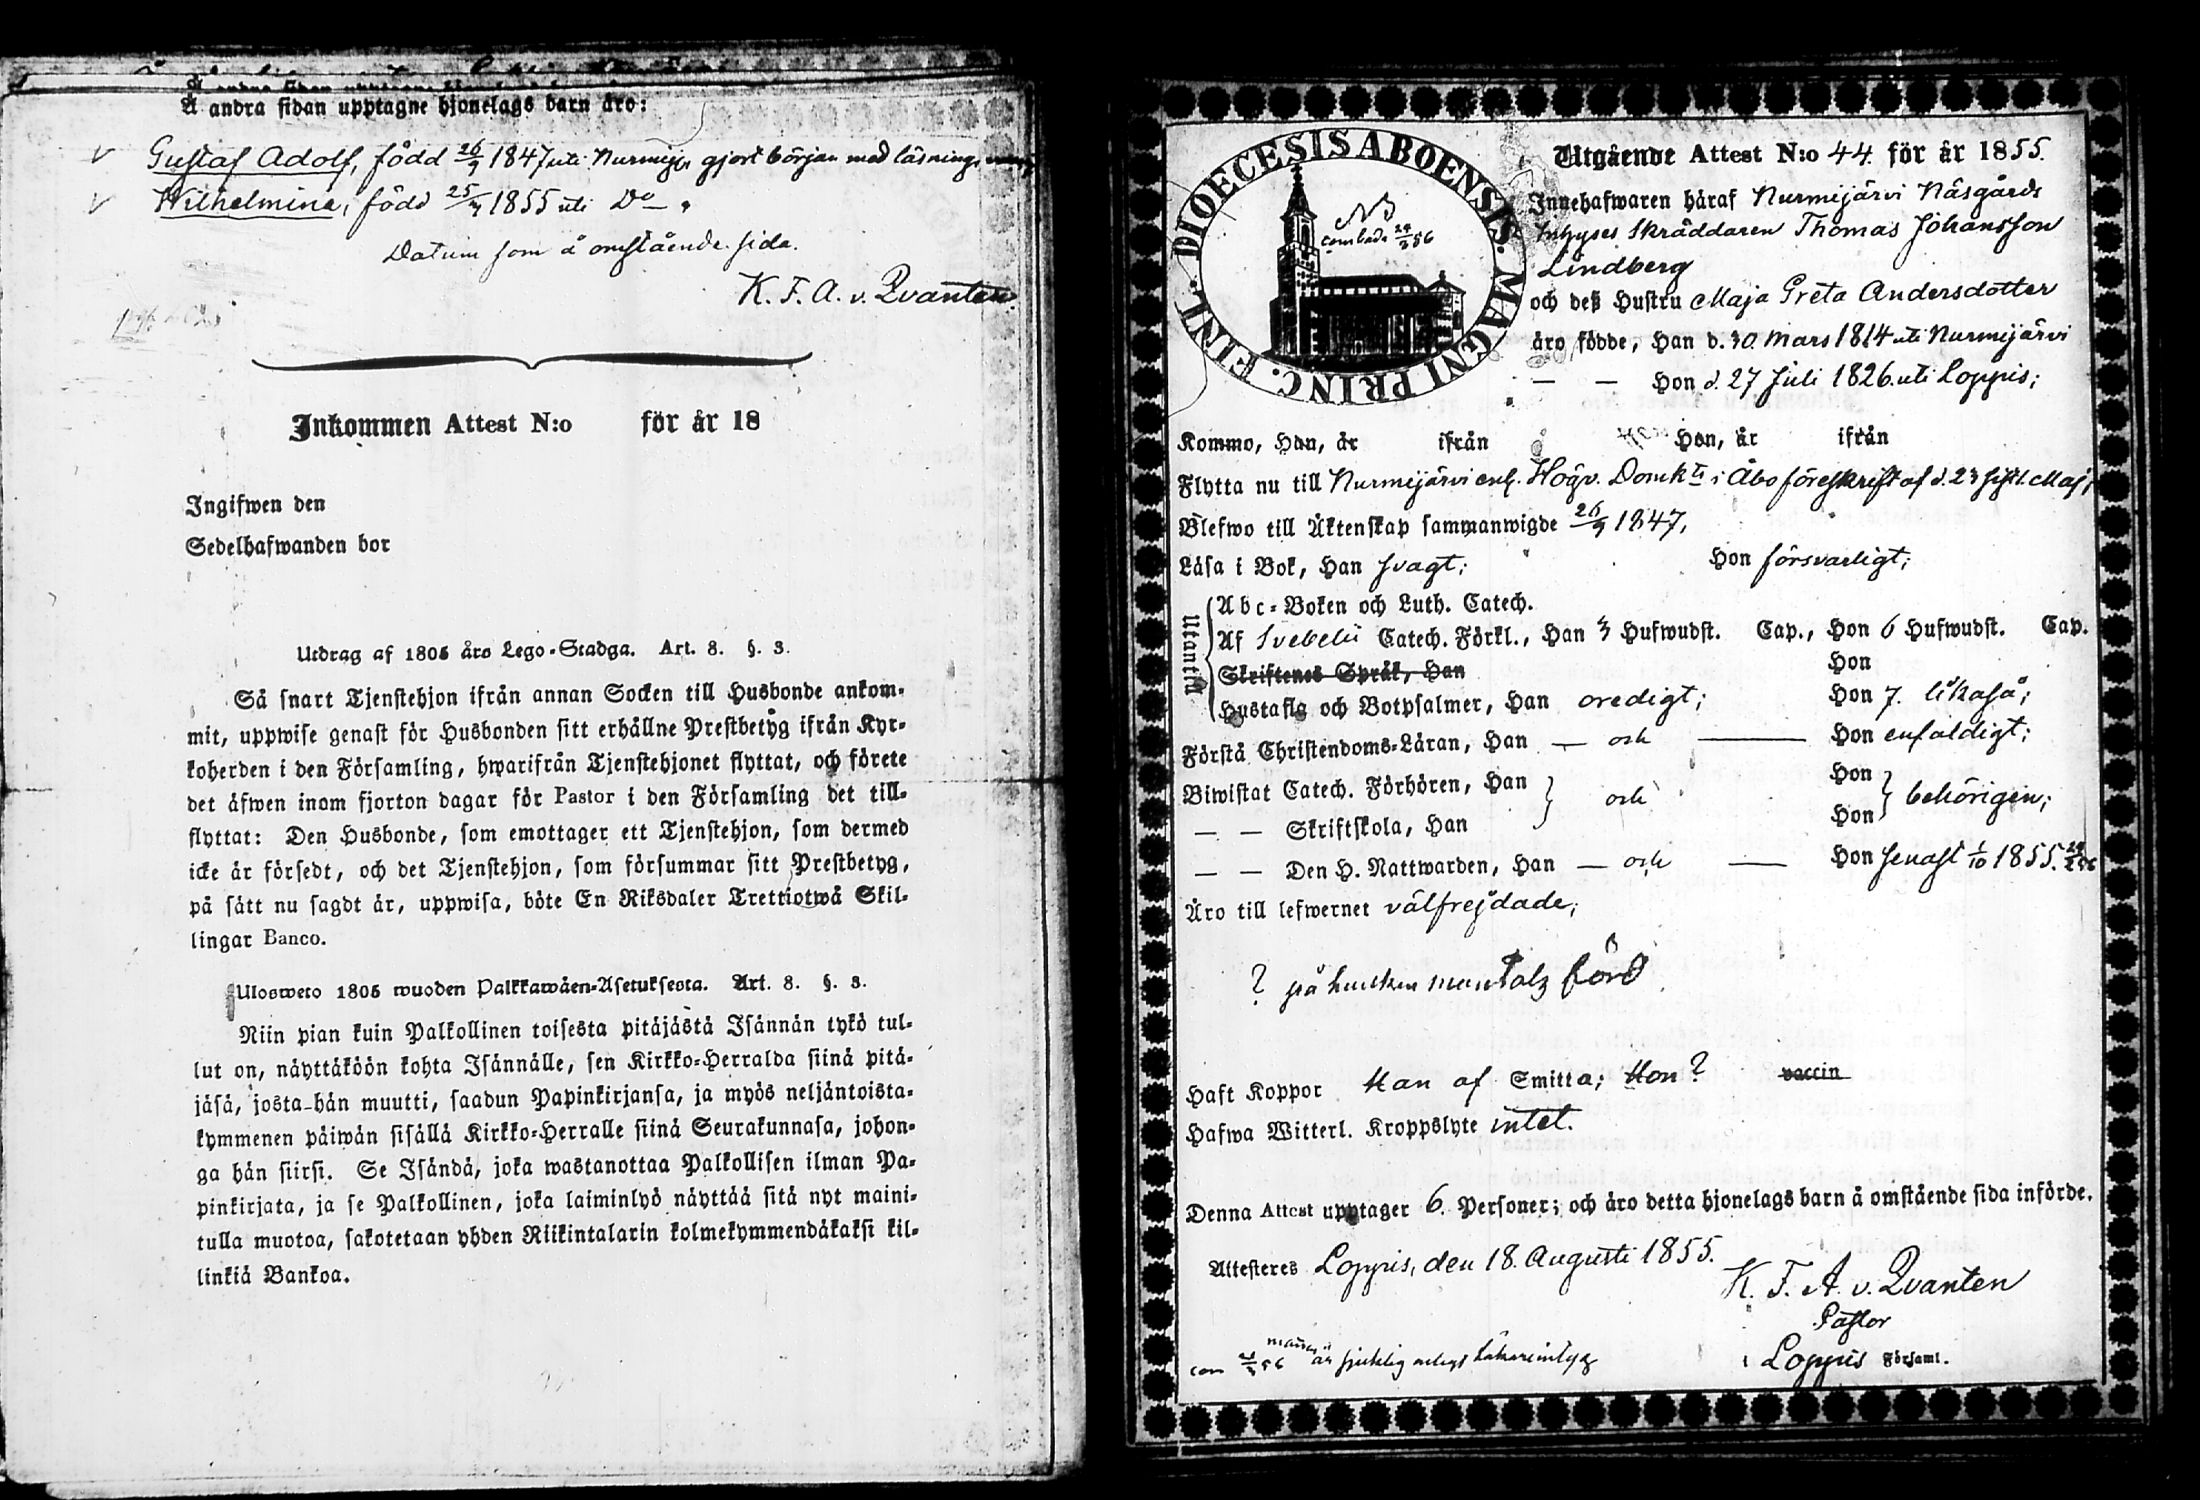 Å andra sidan upptagne hjonelags barn äro:
Gustaf Adolf, född 26/9 1847 uti Nurmijer, gjort början med läsning,
Wilhelmina, född 25/7 1855 uti Do.
Datum som å omstående sida.
K. F. A. v. Qvanten.
Inkommen Attest N:o för år 18
Ingifwen den
Sedelhafwanden bor
Utdrag af 1805 års Lego-Stadga. Art. 8. §. 3.
Så snart Tjenstehjon ifrån annan Socken till Husbonde ankom-
mit, uppwise genast för Husbonden sitt erhållne Prestbetyg ifrån Kyr-
koherden i den Församling, hwarifrån Tjenstehjonet flyttat, och förete
det äfwen inom fjorton dagar för Pastor i den Församling det till-
flyttat: Den Husbonde, som emottager ett Tjenstehjon, som dermed
icke är försedt, och det Tjenstehjon, som försummar sitt Prestbetyg,
på sätt nu sagdt är, uppwisa, böte En Riksdaler Trettiotwå Skil-
lingar Banco.
Ulosweto 1805 wuoden Palkkawäen-Asetuksesta. Art. 8. §. 3.
Niin pian kuin Palkollinen toisesta pitäjästä Isännän tykö tul-
lut on, näyttäköön kohta Isännälle, sen Kirkko-Herralda siinä pitä-
jäsä, josta hän muutti, saadun Papinkirjansa, ja myös neljäntoista-
kymmenen päiwän sisällä Kirkko-Herralle siinä Seurakunnasa, johon-
ga hän siirsi. Se Isändä, joka wastanottaa Palkollisen ilman Pa-
pinkirjata, ja se Palkollinen, joka laiminlyö näyttää sitä nyt maini-
tulla muotoa, sakotetaan yhden Riikintalarin kolmekymmendäkaksi kil-
linkiä Bankoa.
DIOECESIS ABOENSIS. MAGNI PRINC. FINL.
NB
Utgående Attest N:o 44. för år 1855.
Innehafwaren häraf Nurmijärvi Näsgårds
Inhyses Skräddaren Thomas Johansson
Lindberg
och deß Hustru Maja Greta Andersdotter
äro födde, Han d. 30 Mars 1814 uti Nurmijärvi
— — Hon d. 27 Juli 1826 uti Loppis;
Kommo, Han, år ifrån Hon, år ifrån
Flytta nu till Nurmijärvi enl. Högv. Domk:ts i Åbo föreskrift af d. 23 sistl. Maj;
Blefwo till Äktenskap sammanwigde 26/9 1847,
Läsa i Bok, Han svagt; Hon försvarligt;
Utantill
Abc-Boken och Luth. Catech.
Af Svebelii Catech. Förkl., Han 3 Hufwudst. Cap., Hon 6 Hufwudst. Cap.
Skriftenes Språk, Han Hon
Hustafla och Botpsalmer, Han oredigt; Hon 7. likaså;
Förstå Christendoms-Läran, Han — och — Hon enfaldigt;
Biwistat Catech. Förhören, Han och Hon behörigen;
— — Skriftskola, Han Hon
— — Den H. Nattwarden, Han — och — Hon senast 1/10 1855.
Äro till lefwernet välfrejdade;
? på hvilken mantals förd
Haft Koppor Han af Smitta; Hon? vaccin
Hafwa Witterl. Kroppslyte intet.
Denna Attest upptager 6. Personer; och äro detta hjonelags barn å omstående sida införde.
Attesteres Loppis, den 18. Augusti 1855.
K. F. A. v. Qvanten
Pastor
i Loppis Församl.
är sjuklig enligt läkareintyg